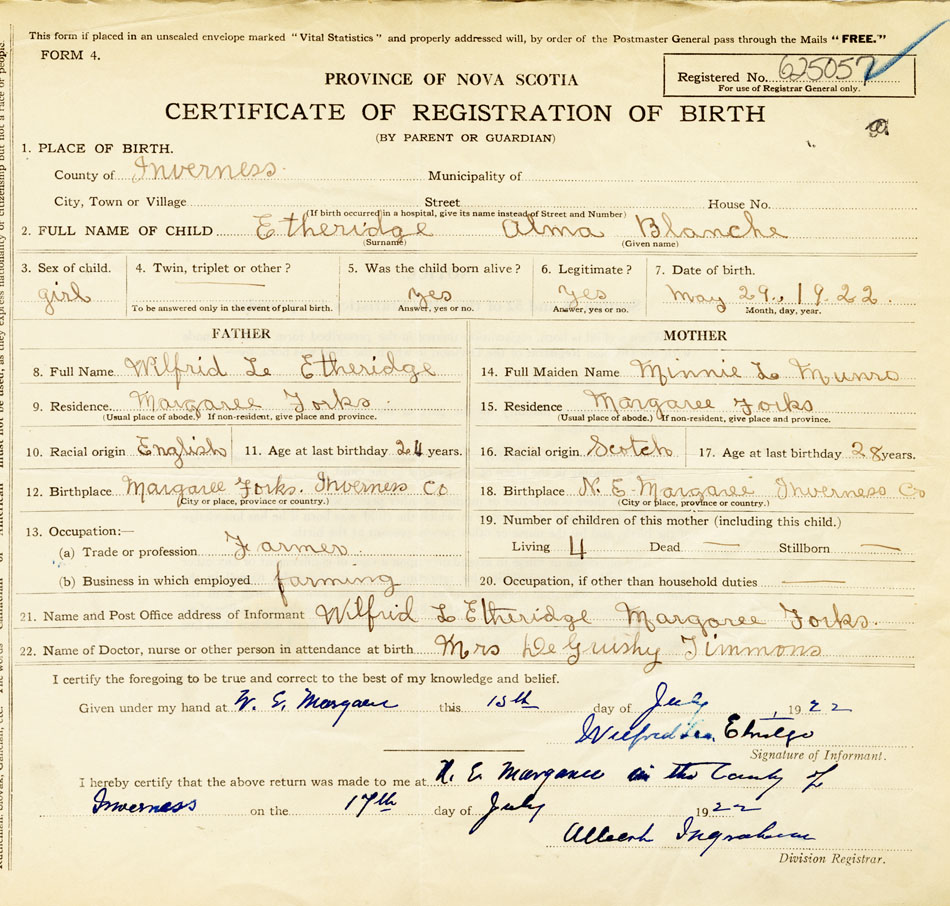 This form if placed in an unsealed envelope marked "Vital Statistics" and properly addressed will, by order of the Postmaster General pass through the Mails "FREE."
FORM 4.
Registered No. 625057
For use of Registrar General only.
PROVINCE OF NOVA SCOTIA
CERTIFICATE OF REGISTRATION OF BIRTH
(BY PARENT OR GUARDIAN)
1. PLACE OF BIRTH.
County of Inverness Municipality of
City, Town or Village Street House No.
(If birth occurred in a hospital, give its name instead of Street and Number)
2. FULL NAME OF CHILD Etheridge Alma Blanche
(Surname) (Given name)
3. Sex of child. 4. Twin, triplet or other? 5. Was the child born alive? 6. Legitimate? 7. Date of birth.
girl yes Yes May 29., 1922.
To be answered only in the event of plural birth. Answer, yes or no. Answer, yes or no. Month, day, year.
FATHER MOTHER
8. Full Name Wilfrid L Etheridge 14. Full Maiden Name Minnie L Munro
9. Residence Margaree Forks 15. Residence Margaree Forks
(Usual place of abode.) If non-resident, give place and province. (Usual place of abode.) If non-resident, give place and province.
10. Racial origin English 11. Age at last birthday 24 years. 16. Racial origin Scotch 17. Age at last birthday 28 years.
12. Birthplace Margaree Forks. Inverness Co 18. Birthplace N. E. Margaree Inverness Co
(City or place, province or country.) (City or place, province or country.)
13. Occupation:— 19. Number of children of this mother (including this child.)
(a) Trade or profession Farmer Living 4 Dead — Stillborn —
(b) Business in which employed farming 20. Occupation, if other than household duties —
21. Name and Post Office address of Informant Wilfrid L Etheridge Margaree Forks.
22. Name of Doctor, nurse or other person in attendance at birth Mrs Timmons
I certify the foregoing to be true and correct to the best of my knowledge and belief.
Given under my hand at Margaree this 15th day of July 1922
Wilfred
Signature of Informant.
I hereby certify that the above return was made to me at N. E. Margaree in the County of
Inverness on the 17th day of July 1922
Albert Ingraham
Division Registrar.